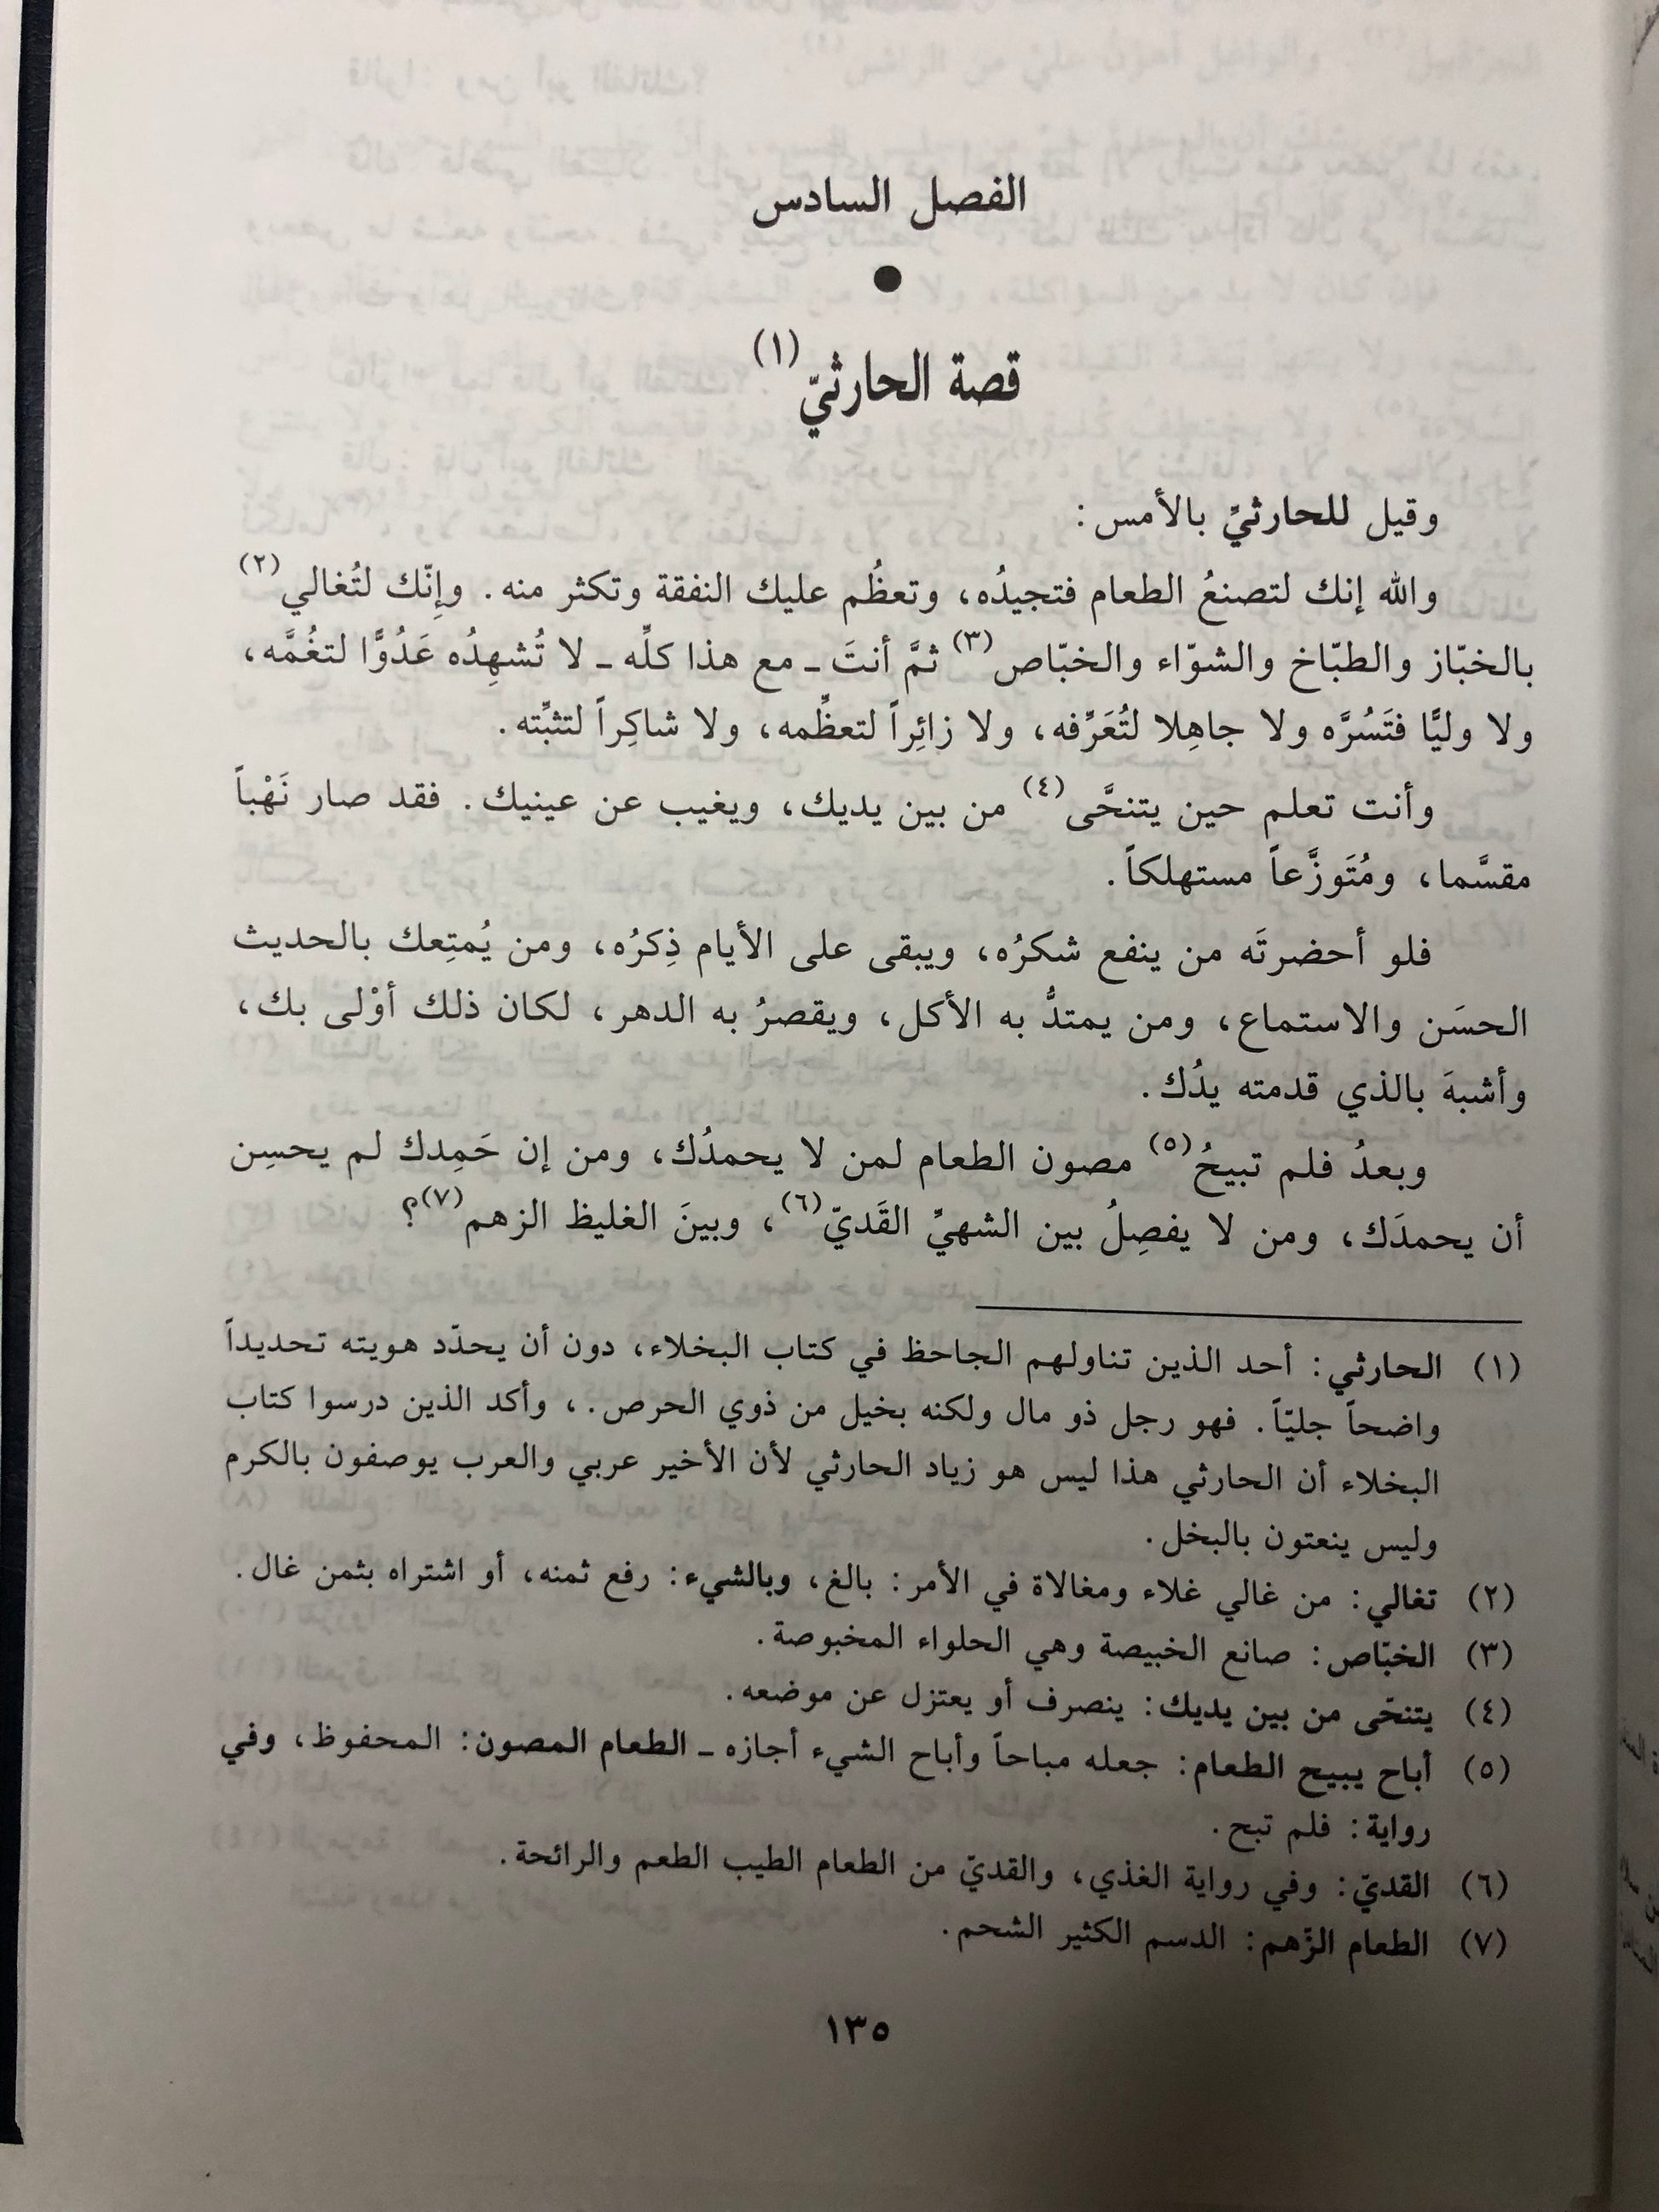 الفصل السادس
●
قصة الحارثيّ(١)
وقيل للحارثيِّ بالأمس:
والله إنك لتصنعُ الطعام فتجيدُه، وتعظُم عليك النفقة وتكثر منه. وإنّك لتُغالي(٢)
بالخبّاز والطبّاخ والشوّاء والخبّاص(٣) ثمَّ أنتَ ـ مع هذا كلِّه ـ لا تُشهِدُه عَدُوًّا لتغُمَّه،
ولا وليًّا فتَسُرَّه ولا جاهِلا لتُعَرِّفه، ولا زائِراً لتعظِّمه، ولا شاكِراً لتثبِّته.
وأنت تعلم حين يتنحَّى(٤) من بين يديك، ويغيب عن عينيك. فقد صار نَهْباً
مقسَّما، ومُتَوزَّعاً مستهلكاً.
فلو أحضرتَه من ينفع شكرُه، ويبقى على الأيام ذِكرُه، ومن يُمتِعك بالحديث
الحسَن والاستماع، ومن يمتدُّ به الأكل، ويقصرُ به الدهر، لكان ذلك أوْلى بك،
وأشبهَ بالذي قدمته يدُك.
وبعدُ فلم تبيحُ(٥) مصون الطعام لمن لا يحمدُك، ومن إن حَمِدك لم يحسِن
أن يحمدَك، ومن لا يفصِلُ بين الشهيِّ القَديّ(٦)، وبينَ الغليظ الزهم(٧)؟
(١) الحارثي: أحد الذين تناولهم الجاحظ في كتاب البخلاء، دون أن يحدّد هويته تحديداً
واضحاً جليّاً. فهو رجل ذو مال ولكنه بخيل من ذوي الحرص.، وأكد الذين درسوا كتاب
البخلاء أن الحارثي هذا ليس هو زياد الحارثي لأن الأخير عربي والعرب يوصفون بالكرم
وليس ينعتون بالبخل.
(٢) تغالي: من غالي غلاء ومغالاة في الأمر: بالغ، وبالشيء: رفع ثمنه، أو اشتراه بثمن غال.
(٣) الخبّاص: صانع الخبيصة وهي الحلواء المخبوصة.
(٤) يتنحّى من بين يديك: ينصرف أو يعتزل عن موضعه.
(٥) أباح يبيح الطعام: جعله مباحاً وأباح الشيء أجازه ـ الطعام المصون: المحفوظ، وفي
رواية: فلم تبح.
(٦) القديّ: وفي رواية الغذي، والقديّ من الطعام الطيب الطعم والرائحة.
(٧) الطعام الزّهم: الدسم الكثير الشحم.
١٣٥